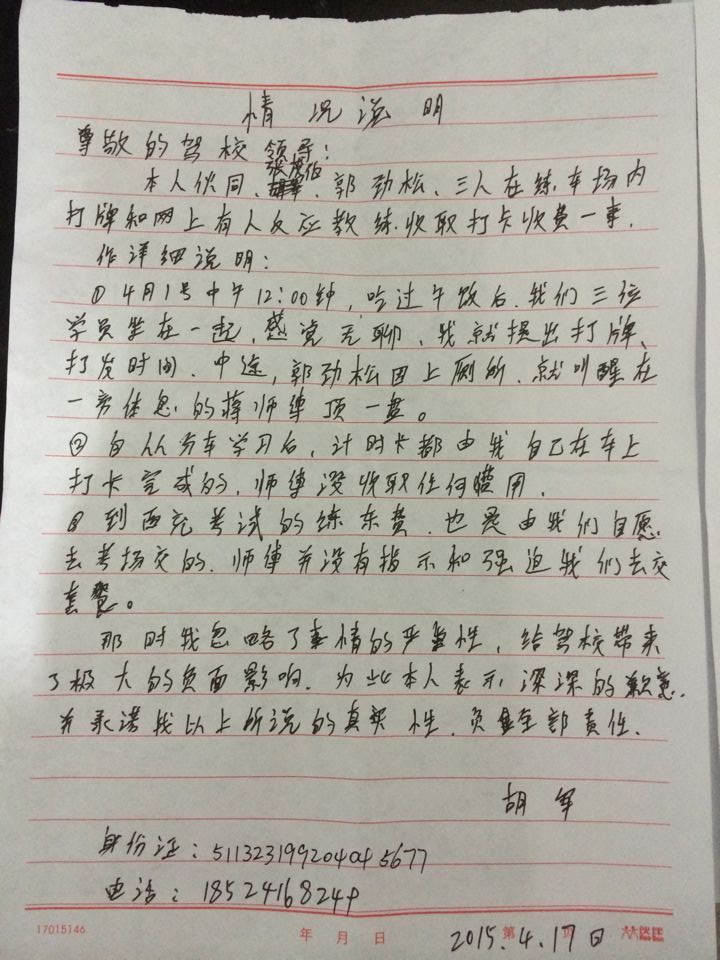 情况说明
尊敬的驾校领导:
本人伙同、张茂伯、郭劲松、三人在练车场内
打牌和网上有人反应教练收取打卡收费一事,
作详细说明:
① 4月1号中午12:00钟,吃过午饭后.我们三位
学员坐在一起,感觉无聊、我就提出打牌、
打发时间.中途,郭劲松因上厕所、就叫醒在
一旁休息的蒋师傅顶一盘。
② 自从分车学习后,计时卡都由我自己在车上
打卡完成的,师傅没收取任何费用,
③ 到西充考试的练车费,也是由我们自愿
去考场交的.师傅并没有指示和强迫我们去交
套餐。
那时我忽略了事情的严重性,给驾校带来
了极大的负面影响.为此本人表示深深的歉意.
并承诺我以上所说的真实性.负全部责任.
胡军
身份证:511323199204045677
电话:18524168249
17015146 年 月 日 第 页
2015.4.17日